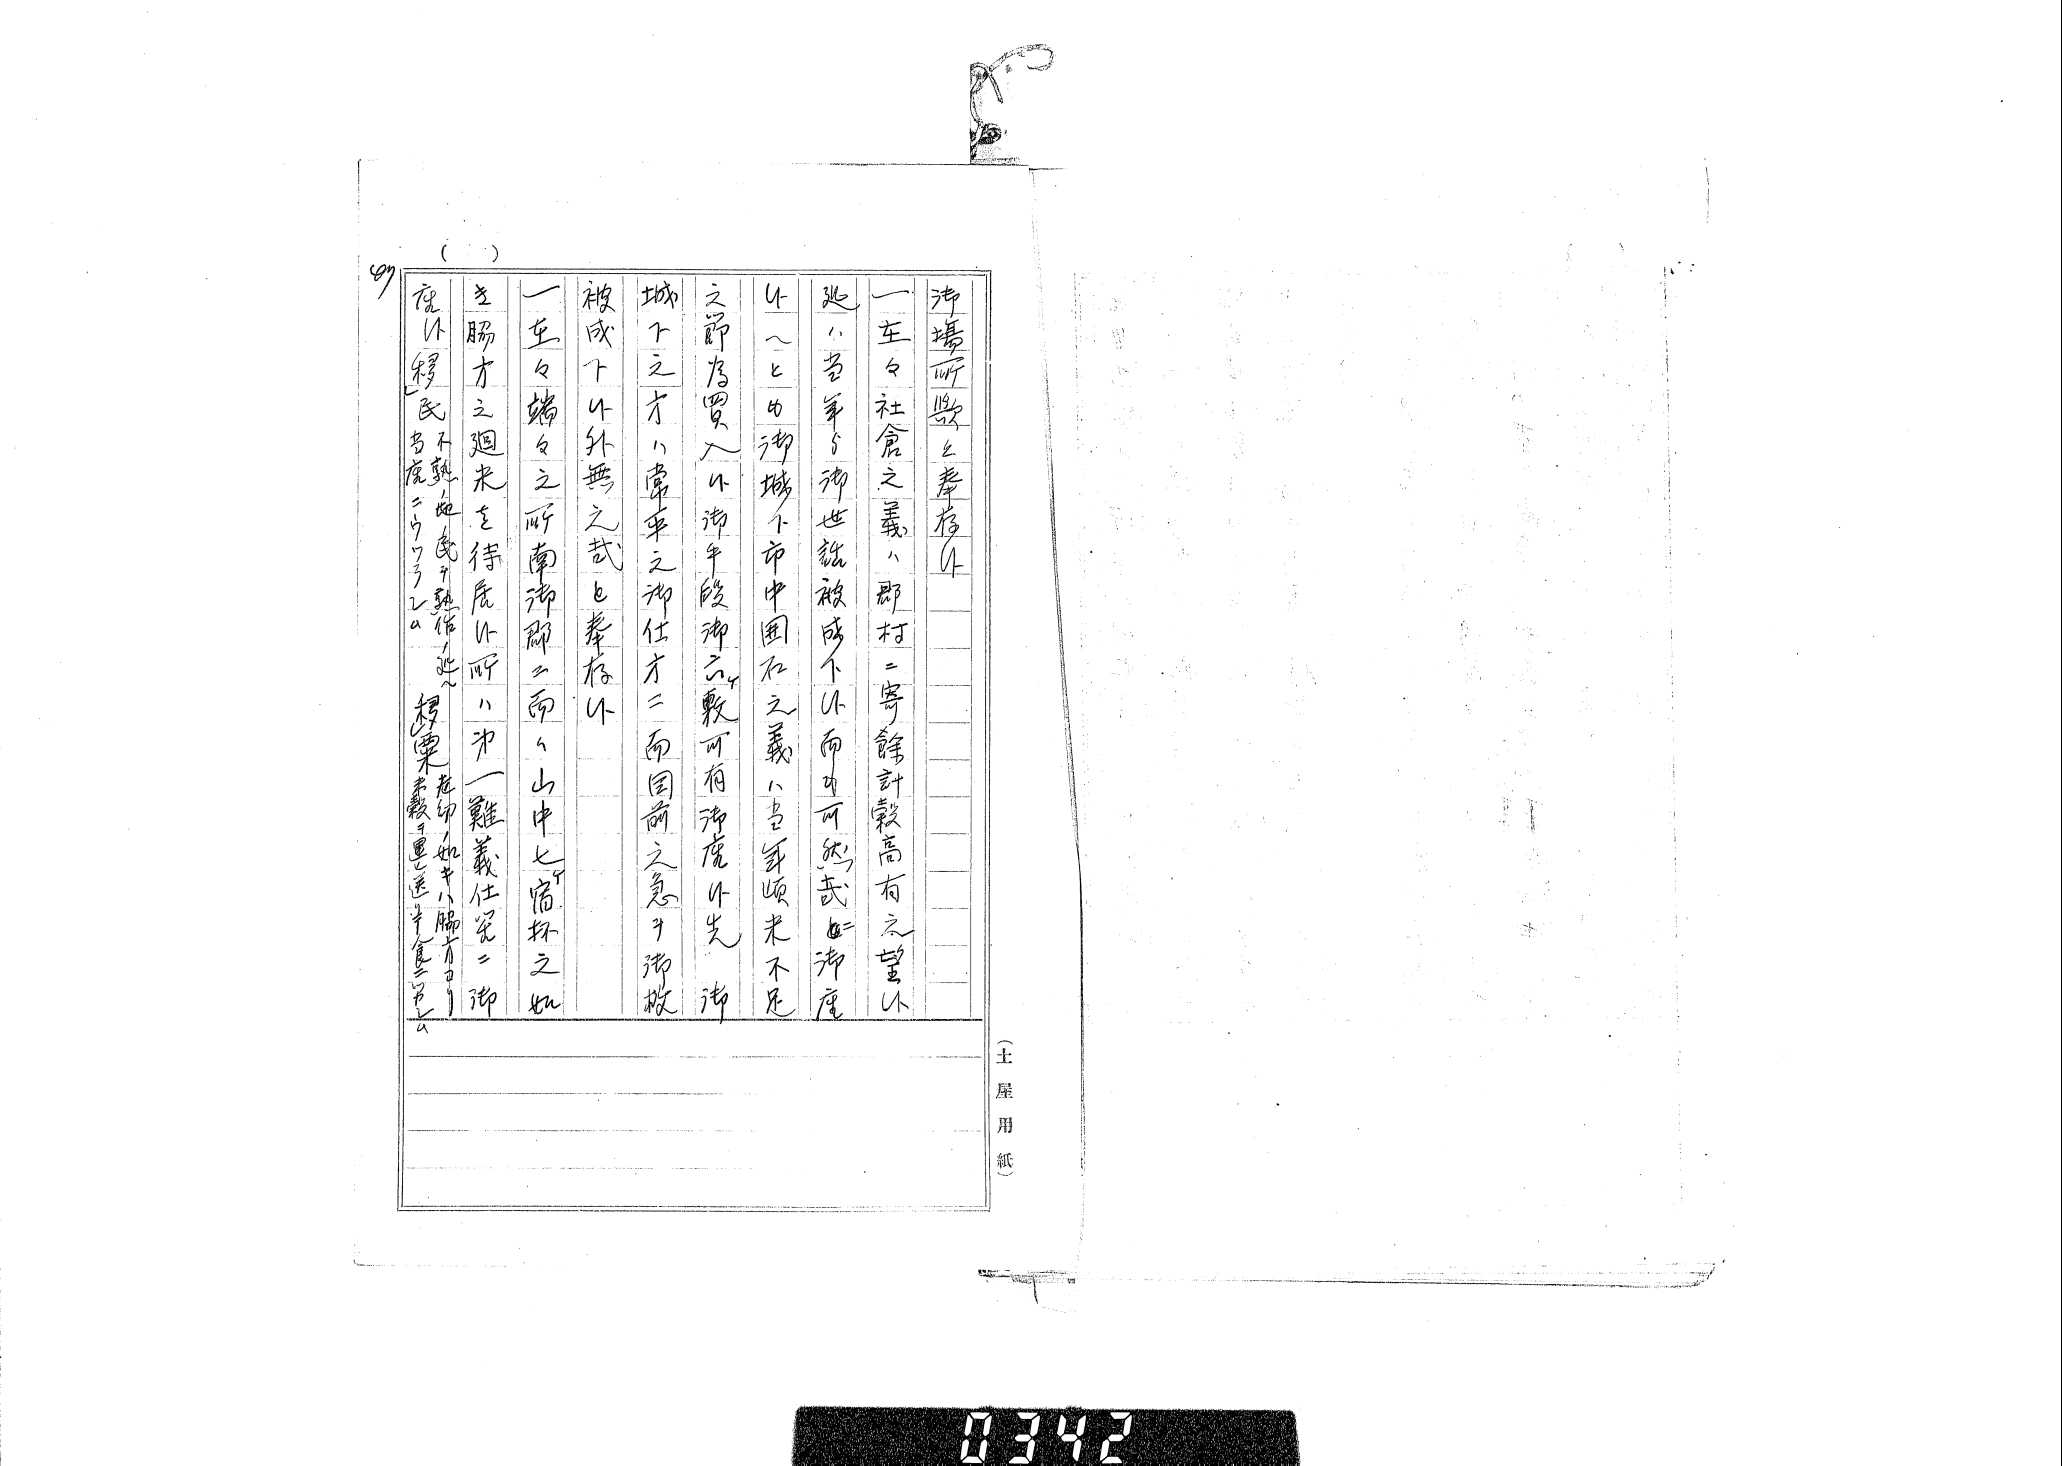 御場所歟と奉存候
一在々社倉之義ハ郡村ニ寄餘計穀高有之望候
処ハ当年ゟ御世話被成下候而も可然哉ニ御座
候へとも御城下市中囲石之義ハ当年頃米不足
之節為買入候御手段御六ケ敷可有御座候先 御
城下之方ハ常平之御仕方ニ而目前之急ヲ御救
被成下候外無之哉と奉存候
一在々端々之所南御郡ニ而ハ山中七ケ宿抔之如
き脇方之廻米を待居候所ハ第一難義仕候ニ御
座候移民不熟ノ地ノ民ヲ熟作ノ処へ
当座ニウツラシム
移粟老幼ノ如キハ脇方ヨリ
米穀ヲ運送リテ食ニ
( )
(土屋用紙)
0342